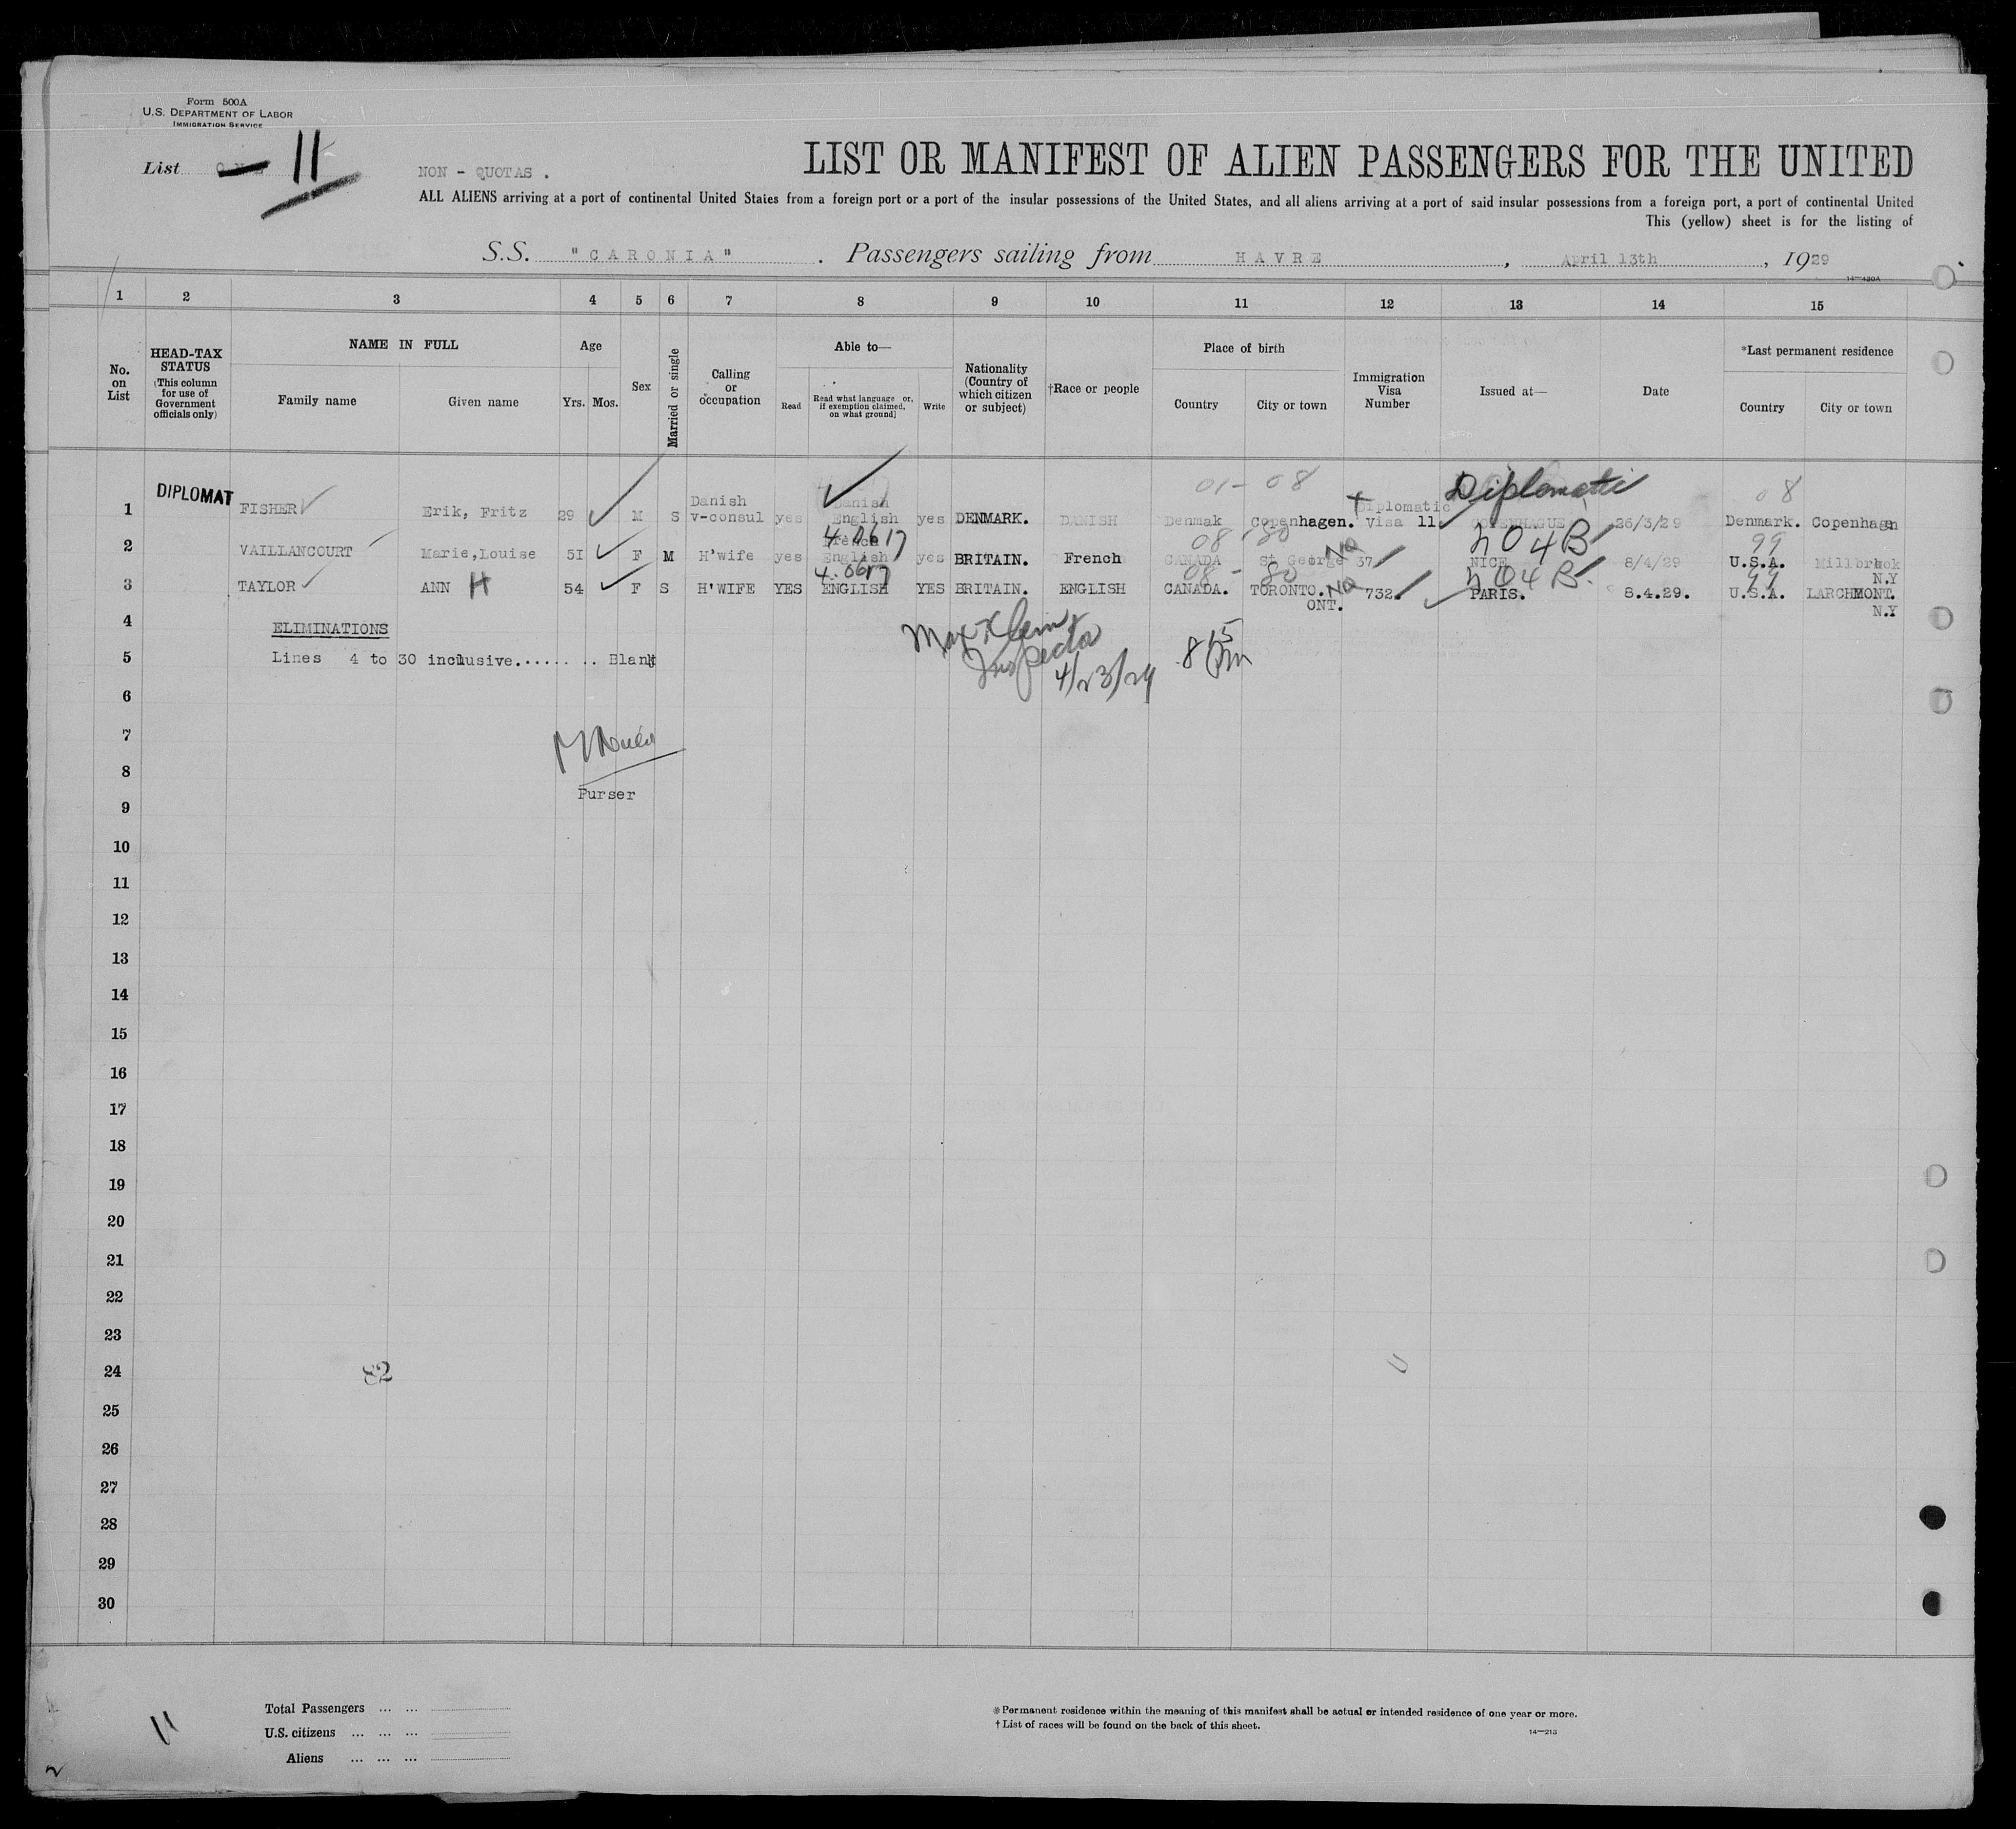 Form 500A
U.S. DEPARTMENT OF LABOR
IMMIGRATION SERVICE
List 11
NON - QUOTAS .
LIST OR MANIFEST OF ALIEN PASSENGERS FOR THE UNITED
ALL ALIENS arriving at a port of continental United States from a foreign port or a port of the insular possessions of the United States, and all aliens arriving at a port of said insular possessions from a foreign port, a port of continental United
This (yellow) sheet is for the listing of
S.S. "CARONIA" . Passengers sailing from HAVRE , April 13th , 1929
14—430A
1 2 3 4 5 6 7 8 9 10 11 12 13 14 15
No. on List
HEAD-TAX STATUS (This column for use of Government officials only)
NAME IN FULL
Family name Given name
Age
Yrs. Mos.
Sex
Married or single
Calling or occupation
Able to—
Read Read what language or, if exemption claimed, on what ground] Write
Nationality (Country of which citizen or subject)
†Race or people
Place of birth
Country City or town
Immigration Visa Number
Issued at—
Date
*Last permanent residence
Country City or town
01 - 08 Diplomatic 08
1 DIPLOMAT FISHER Erik, Fritz 29 M S Danish v-consul yes Danish English yes DENMARK. DANISH Denmak Copenhagen. Diplomatic Visa 11 COPENHAGUE 26/3/29 Denmark. Copenhagn
4.0617 08 - 80 No 204B 99
2 VAILLANCOURT Marie,Louise 51 F M H'wife yes French English yes BRITAIN. French CANADA St George 37 NICE 8/4/29 U.S.A. Millbrook N.Y
4.0617 08 - 80 No 204B 99
3 TAYLOR ANN H 54 F S H'WIFE YES ENGLISH YES BRITAIN. ENGLISH CANADA. TORONTO. ONT. 732. PARIS. 8.4.29. U.S.A. LARCHMONT. N.Y
4 ELIMINATIONS
5 Lines 4 to 30 inclusive........ Blank
Max Klein
Inspector
4/23/29
8 15 Pm
6
7
8
Purser
9
10
11
12
13
14
15
16
17
18
19
20
21
22
23
24 82
25
26
27
28
29
30
Total Passengers ... ...
U.S. citizens ... ... ...
Aliens ... ... ...
11
2
*Permanent residence within the meaning of this manifest shall be actual or intended residence of one year or more.
†List of races will be found on the back of this sheet.
14—213